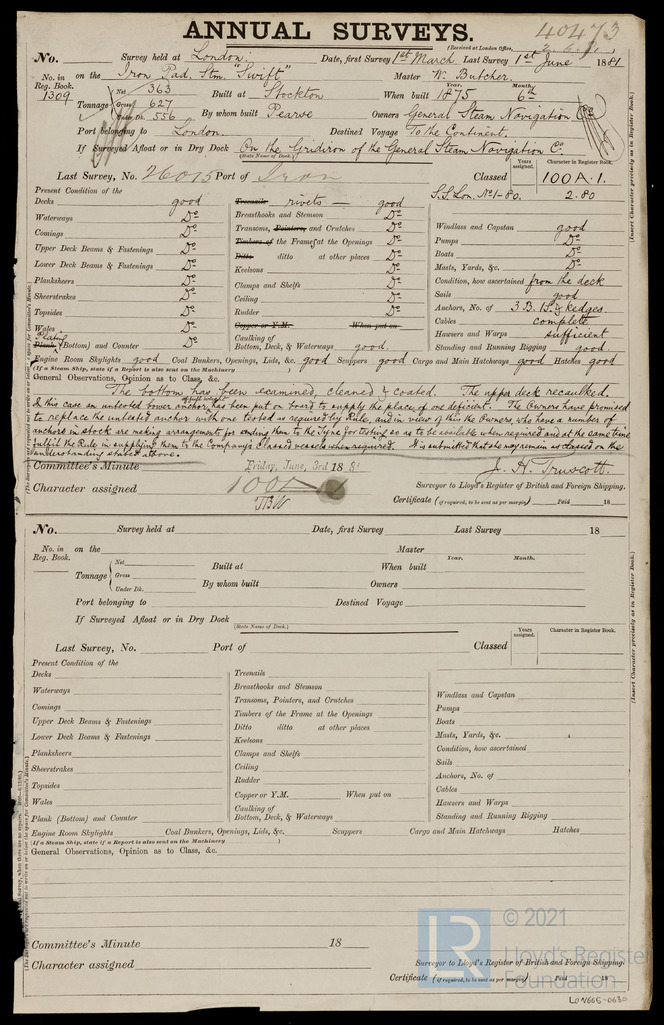 ANNUAL SURVEYS.
40473
(Received at London Office, 2.6.81)
No. Survey held at London. Date, first Survey 1st March Last Survey 1st June 1881
No. in Reg. Book. 1309 on the Iron Pad. Stm. "Swift" Master W. Butcher.
Tonnage Net 363 Gross 627 Under Dk. 556 Built at Stockton When built Year. 1875 Month. 6
By whom built Pearse Owners General Steam Navigation Co
Port belonging to London. Destined Voyage To the Continent.
If Surveyed Afloat or in Dry Dock On the Gridiron of the General Steam Navigation Co.
(State Name of Dock.)
Last Survey, No. 26015 Port of Iron Classed Years assigned. Character in Register Book. 100 A.1.
S.S. Lon. No 1-80. 2.80
Present Condition of the
Decks good
Waterways Do
Comings Do
Upper Deck Beams & Fastenings Do
Lower Deck Beams & Fastenings Do
Planksheers Do
Sheerstrakes Do
Topsides Do
Wales Do
Plating Plank (Bottom) and Counter Do
Treenails rivets good
Breasthooks and Stemson Do
Transoms, Pointers, and Crutches Do
Timbers of the Frames at the Openings Do
Ditto ditto at other places Do
Keelsons Do
Clamps and Shelfs Do
Ceiling Do
Rudder Do
Copper or Y.M. When put on
Caulking of Bottom, Deck, & Waterways good.
Windlass and Capstan good
Pumps Do
Boats Do
Masts, Yards, &c. Do
Condition, how ascertained from the deck
Sails good
Anchors, No. of 3 B. 1S. & kedges
Cables complete
Hawsers and Warps sufficient
Standing and Running Rigging good.
Engine Room Skylights good Coal Bunkers, Openings, Lids, &c. good Scuppers good Cargo and Main Hatchways good Hatches good
(If a Steam Ship, state if a Report is also sent on the Machinery )
General Observations, Opinion as to Class, &c.
The bottom has been examined, cleaned & coated. The upper deck recaulked.
In this case an untested bower anchor, of full weight has been put on board to supply the place of one deficient. The Owners have promised
to replace the untested anchor with one tested as required by Rule, and in view of this the Owners, who have a number of
anchors in stock are making arrangements for sending them to the Tyne for testing so as to be available when required and at the same time
fulfil the Rule in supplying them to the Company's Classed vessels when required. It is submitted that she may remain as classed on the
understanding stated above.
J. H. Truscott.
Committee's Minute Friday, June, 3rd 1881
Surveyor to Lloyd's Register of British and Foreign Shipping.
Character assigned 100 A 1
Certificate (if required, to be sent as per margin) Paid 18
No. Survey held at Date, first Survey Last Survey 18
No. in Reg. Book. on the Master
Tonnage Net Gross Under Dk. Built at When built Year. Month.
By whom built Owners
Port belonging to Destined Voyage
If Surveyed Afloat or in Dry Dock
(State Name of Dock.)
Last Survey, No. Port of Classed Years assigned. Character in Register Book.
Present Condition of the
Decks
Waterways
Comings
Upper Deck Beams & Fastenings
Lower Deck Beams & Fastenings
Planksheers
Sheerstrakes
Topsides
Wales
Plank (Bottom) and Counter
Treenails
Breasthooks and Stemson
Transoms, Pointers, and Crutches
Timbers of the Frame at the Openings
Ditto ditto at other places
Keelsons
Clamps and Shelfs
Ceiling
Rudder
Copper or Y.M. When put on
Caulking of Bottom, Deck, & Waterways
Windlass and Capstan
Pumps
Boats
Masts, Yards, &c.
Condition, how ascertained
Sails
Anchors, No. of
Cables
Hawsers and Warps
Standing and Running Rigging
Engine Room Skylights Coal Bunkers, Openings, Lids, &c. Scuppers Cargo and Main Hatchways Hatches
(If a Steam Ship, state if a Report is also sent on the Machinery )
General Observations, Opinion as to Class, &c.
Committee's Minute 18
Character assigned
Surveyor to Lloyd's Register of British and Foreign Shipping.
Certificate (if required, to be sent as per margin) Paid 18
(Insert Character precisely as in Register Book.)
(Insert Character precisely as in Register Book.)
LR © 2021
Lloyd's Register
Foundation
LON665-0630